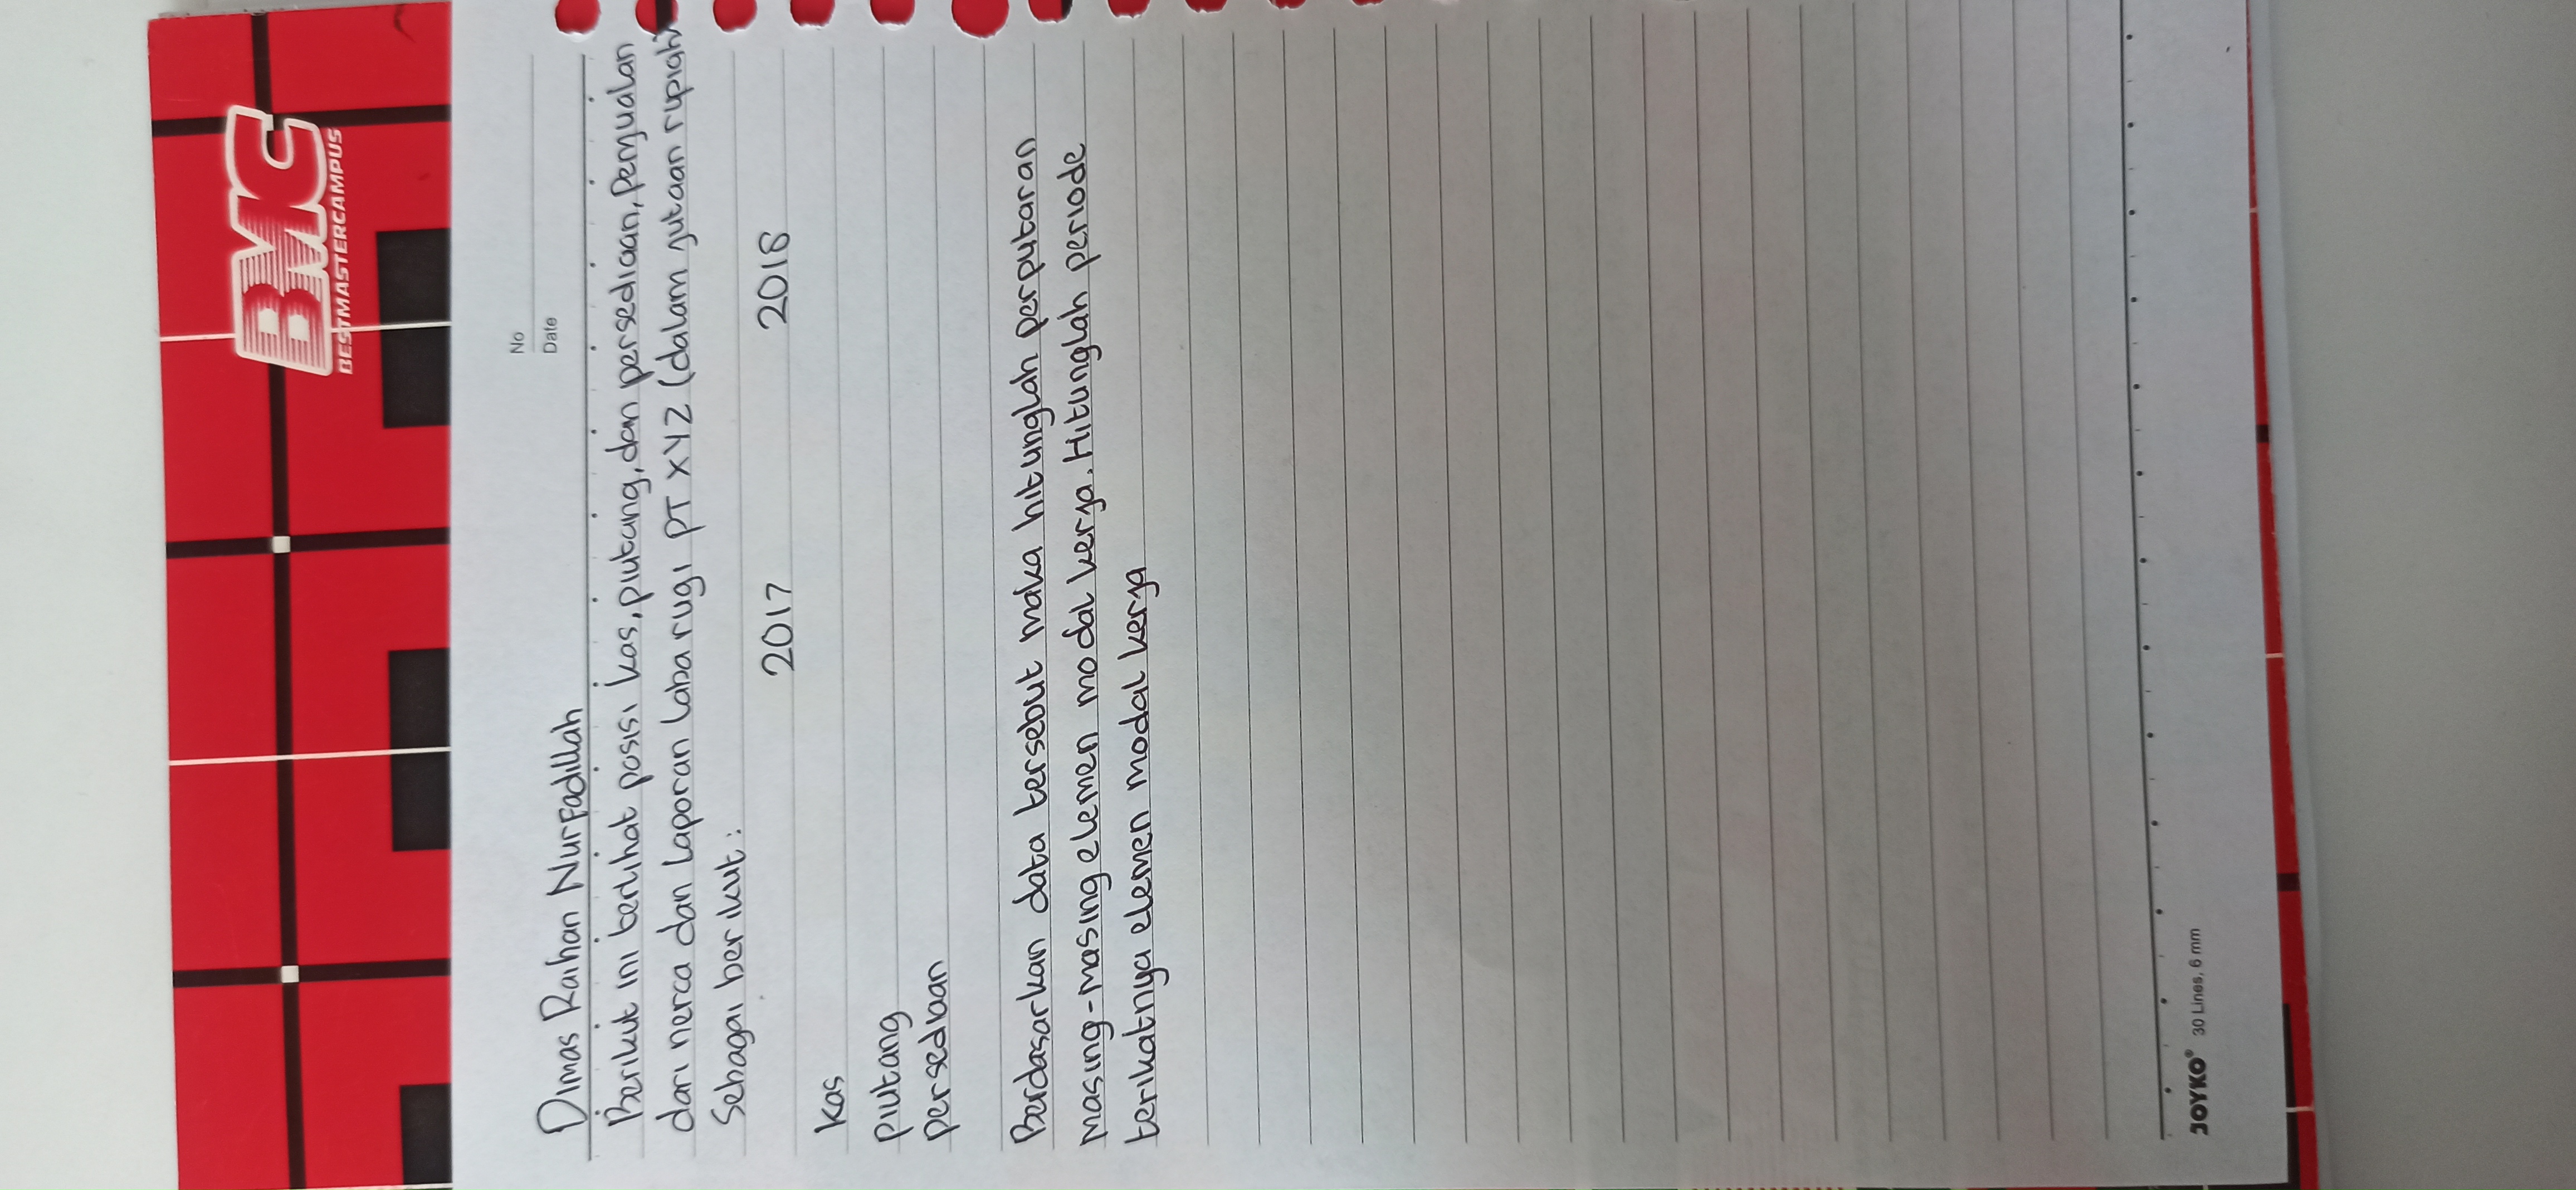 BMC
BESTMASTERCAMPUS
No
Date
Dimas Raihan Nurfadillah
Berikut ini terlihat posisi kas, piutang, dan persediaan, penjualan
dari nerca dan laporan laba rugi PT XYZ (dalam jutaan rupiah)
Sebagai berikut :
2017 2018
Kas
piutang
persediaan
Berdasarkan data tersebut maka hitunglah perputaran
masing-masing elemen modal kerja. Hitunglah periode
terikatnya elemen modal kerja
JOYKO® 30 Lines, 6 mm